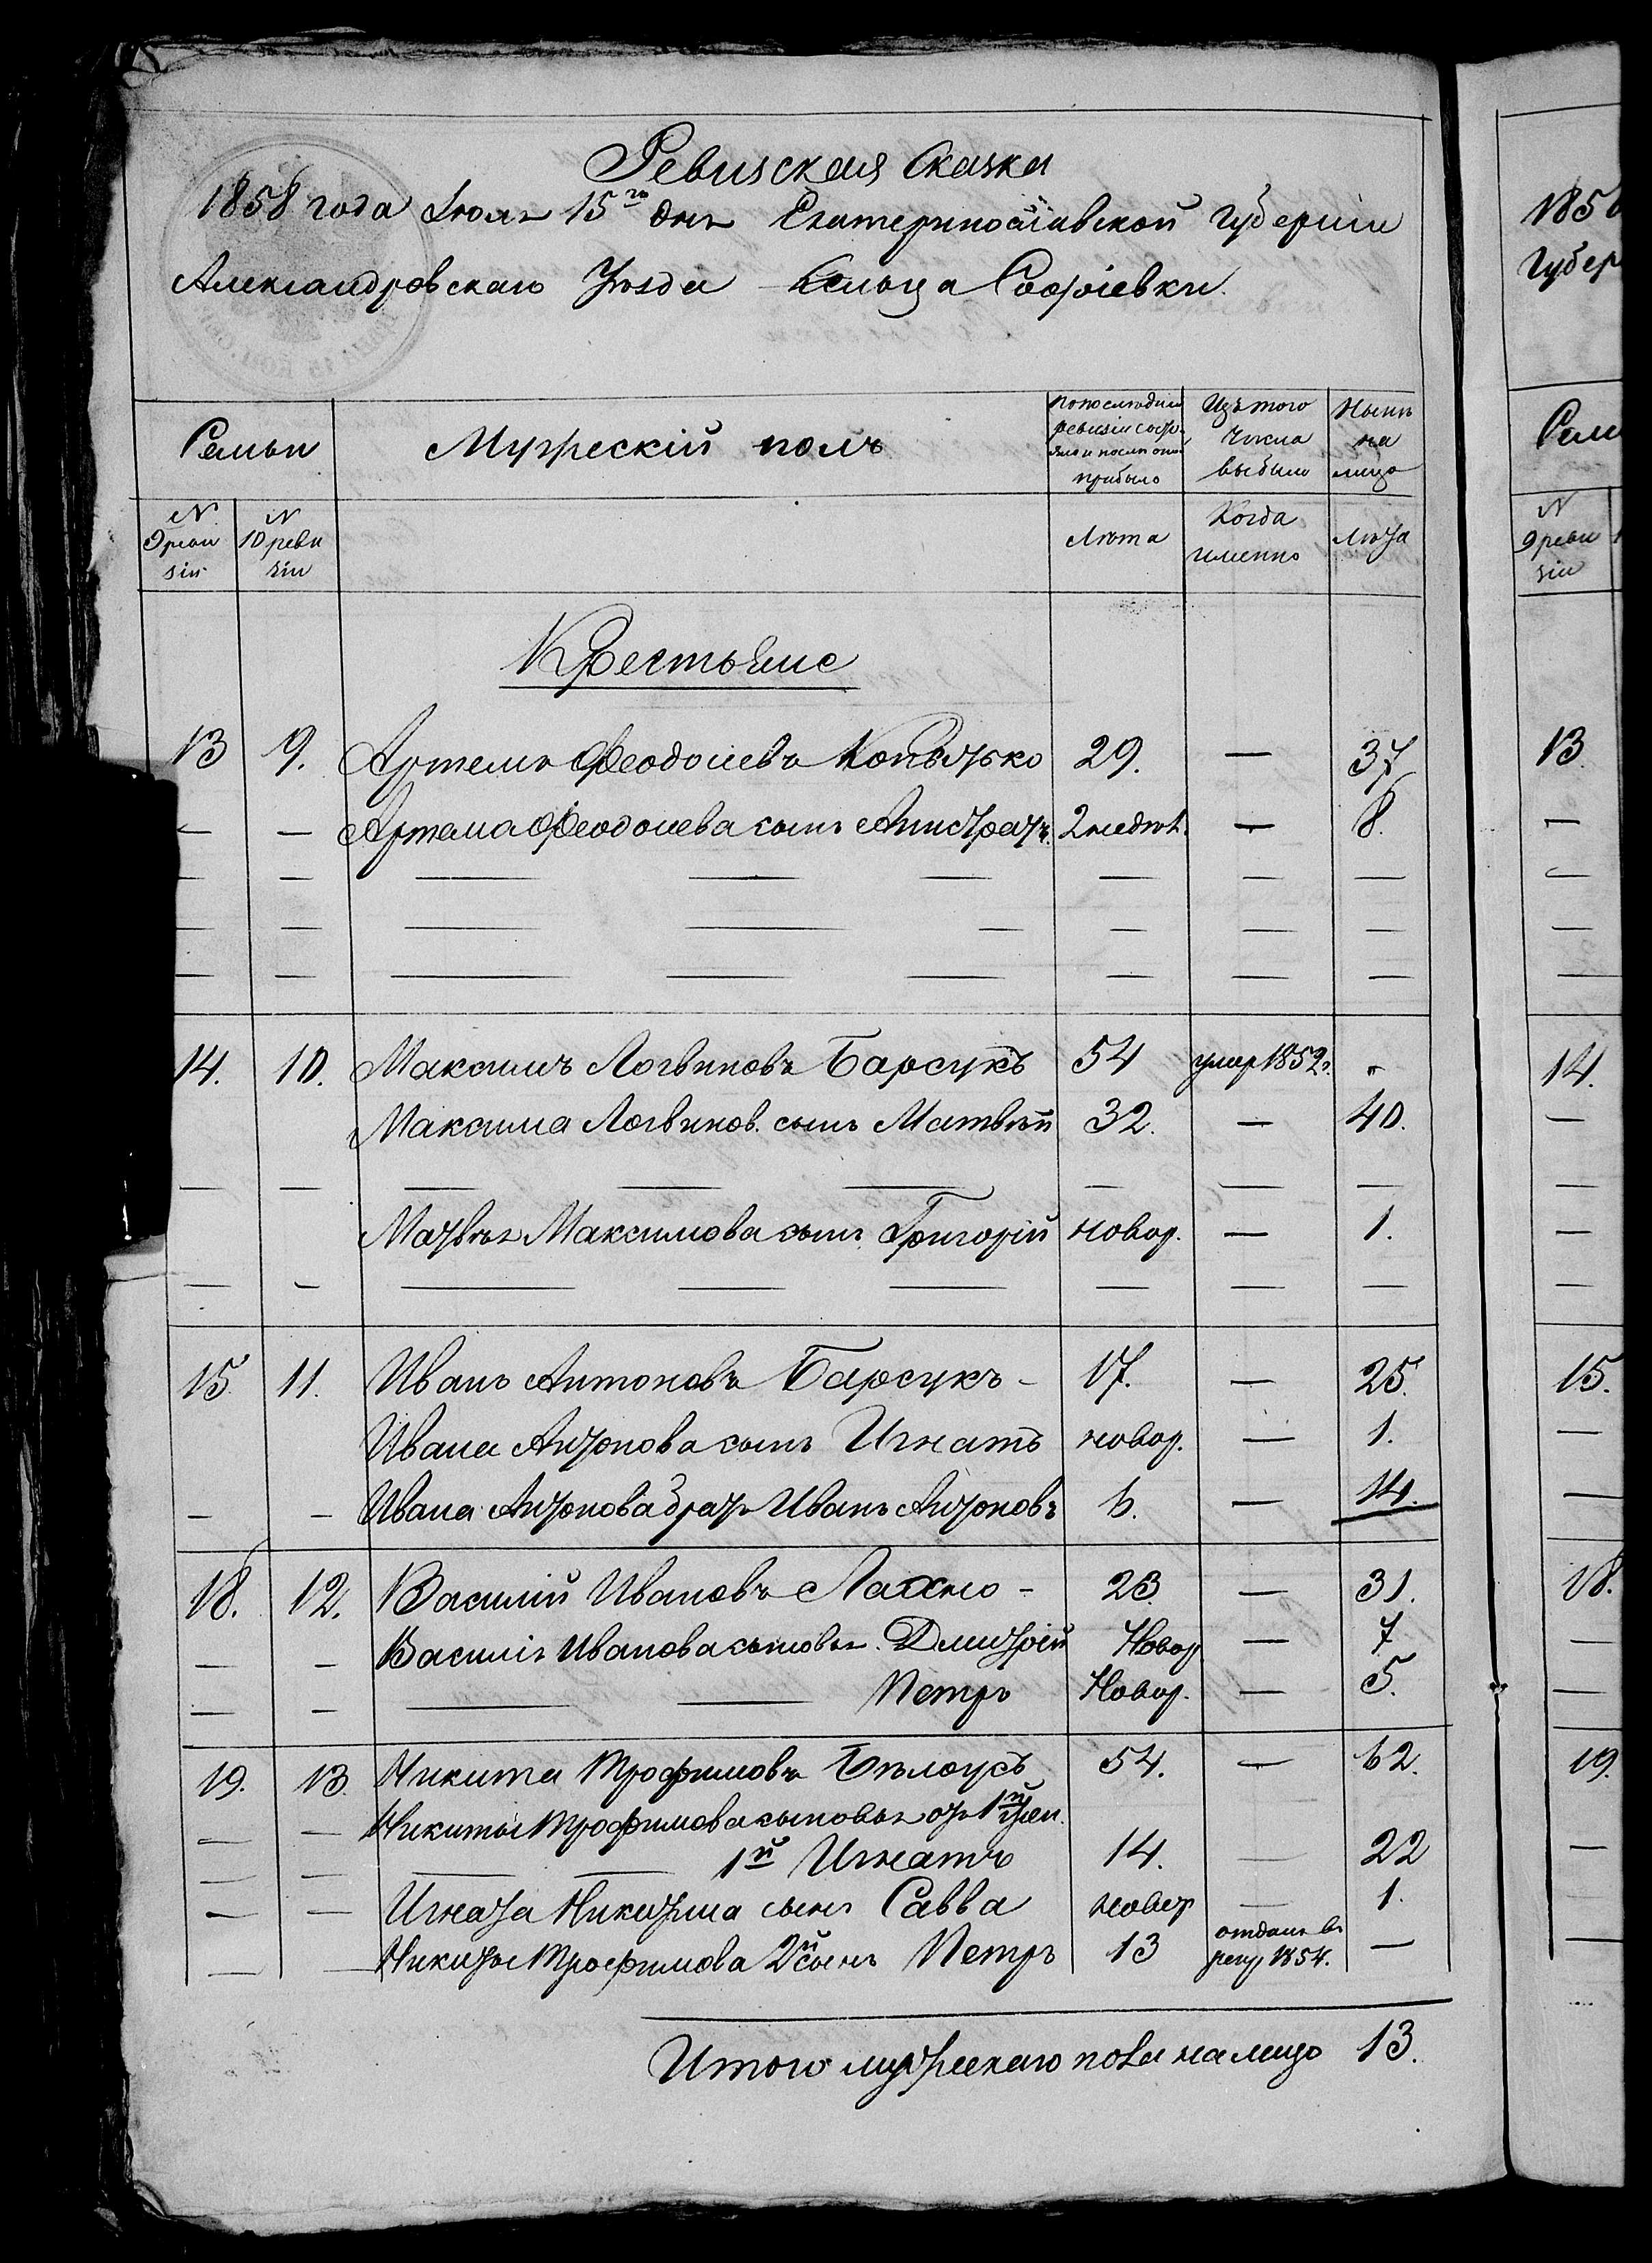 Ревизская Сказка
1858 года Іюля 15го дня Екатеринославской Губерніи
Александровскаго Уѣзда Сельца Софіевки.
Семьи
Мужескій полъ
По последней ревизіи состояло и после оной прибыло
Изъ того числа выбыло
Нынѣ на лицо
N 9 ревизіи
N 10 ревизіи
Лѣта
Когда именно
Лѣта
Крестьяне
13 9. Артемъ Феодосіевъ 29. — 37
— — Артема Феодосіева сынъ 2 недѣл. — 8.
14. 10. Максимъ Логвиновъ Барсукъ 54 умер 1852г.
Максима Логвинов. сынъ Матвѣй 32. — 40.
Матвѣя Максимова сынъ Григорій новор. — 1.
15. 11. Иванъ Антоновъ Барсукъ - 17. — 25.
Ивана Антонова сынъ Игнатъ новор. — 1.
— — Ивана Антонова братъ Иванъ Антоновъ 6. — 14.
18. 12. Василій Ивановъ Лахно - 23. — 31.
— — Василія Иванова сыновья. Дмитрій Новор — 7
— — Петръ Новор. — 5.
19. 13. Никита Трофимовъ Бѣлоусъ 54. — 62.
— — Никиты Трофимова сыновья от 1й жен.
— — 1й Игнатъ 14. — 22
— — Игната Никитина сынъ Савва новор — 1.
— — Никиты Трофимова 2й сынъ Петръ 13 отданъ въ рекр 1854. —
Итого мужескаго пола на лицо 13.
1858
Губер
Семь
N 9 ревизіи
13.
14.
15.
18.
19.